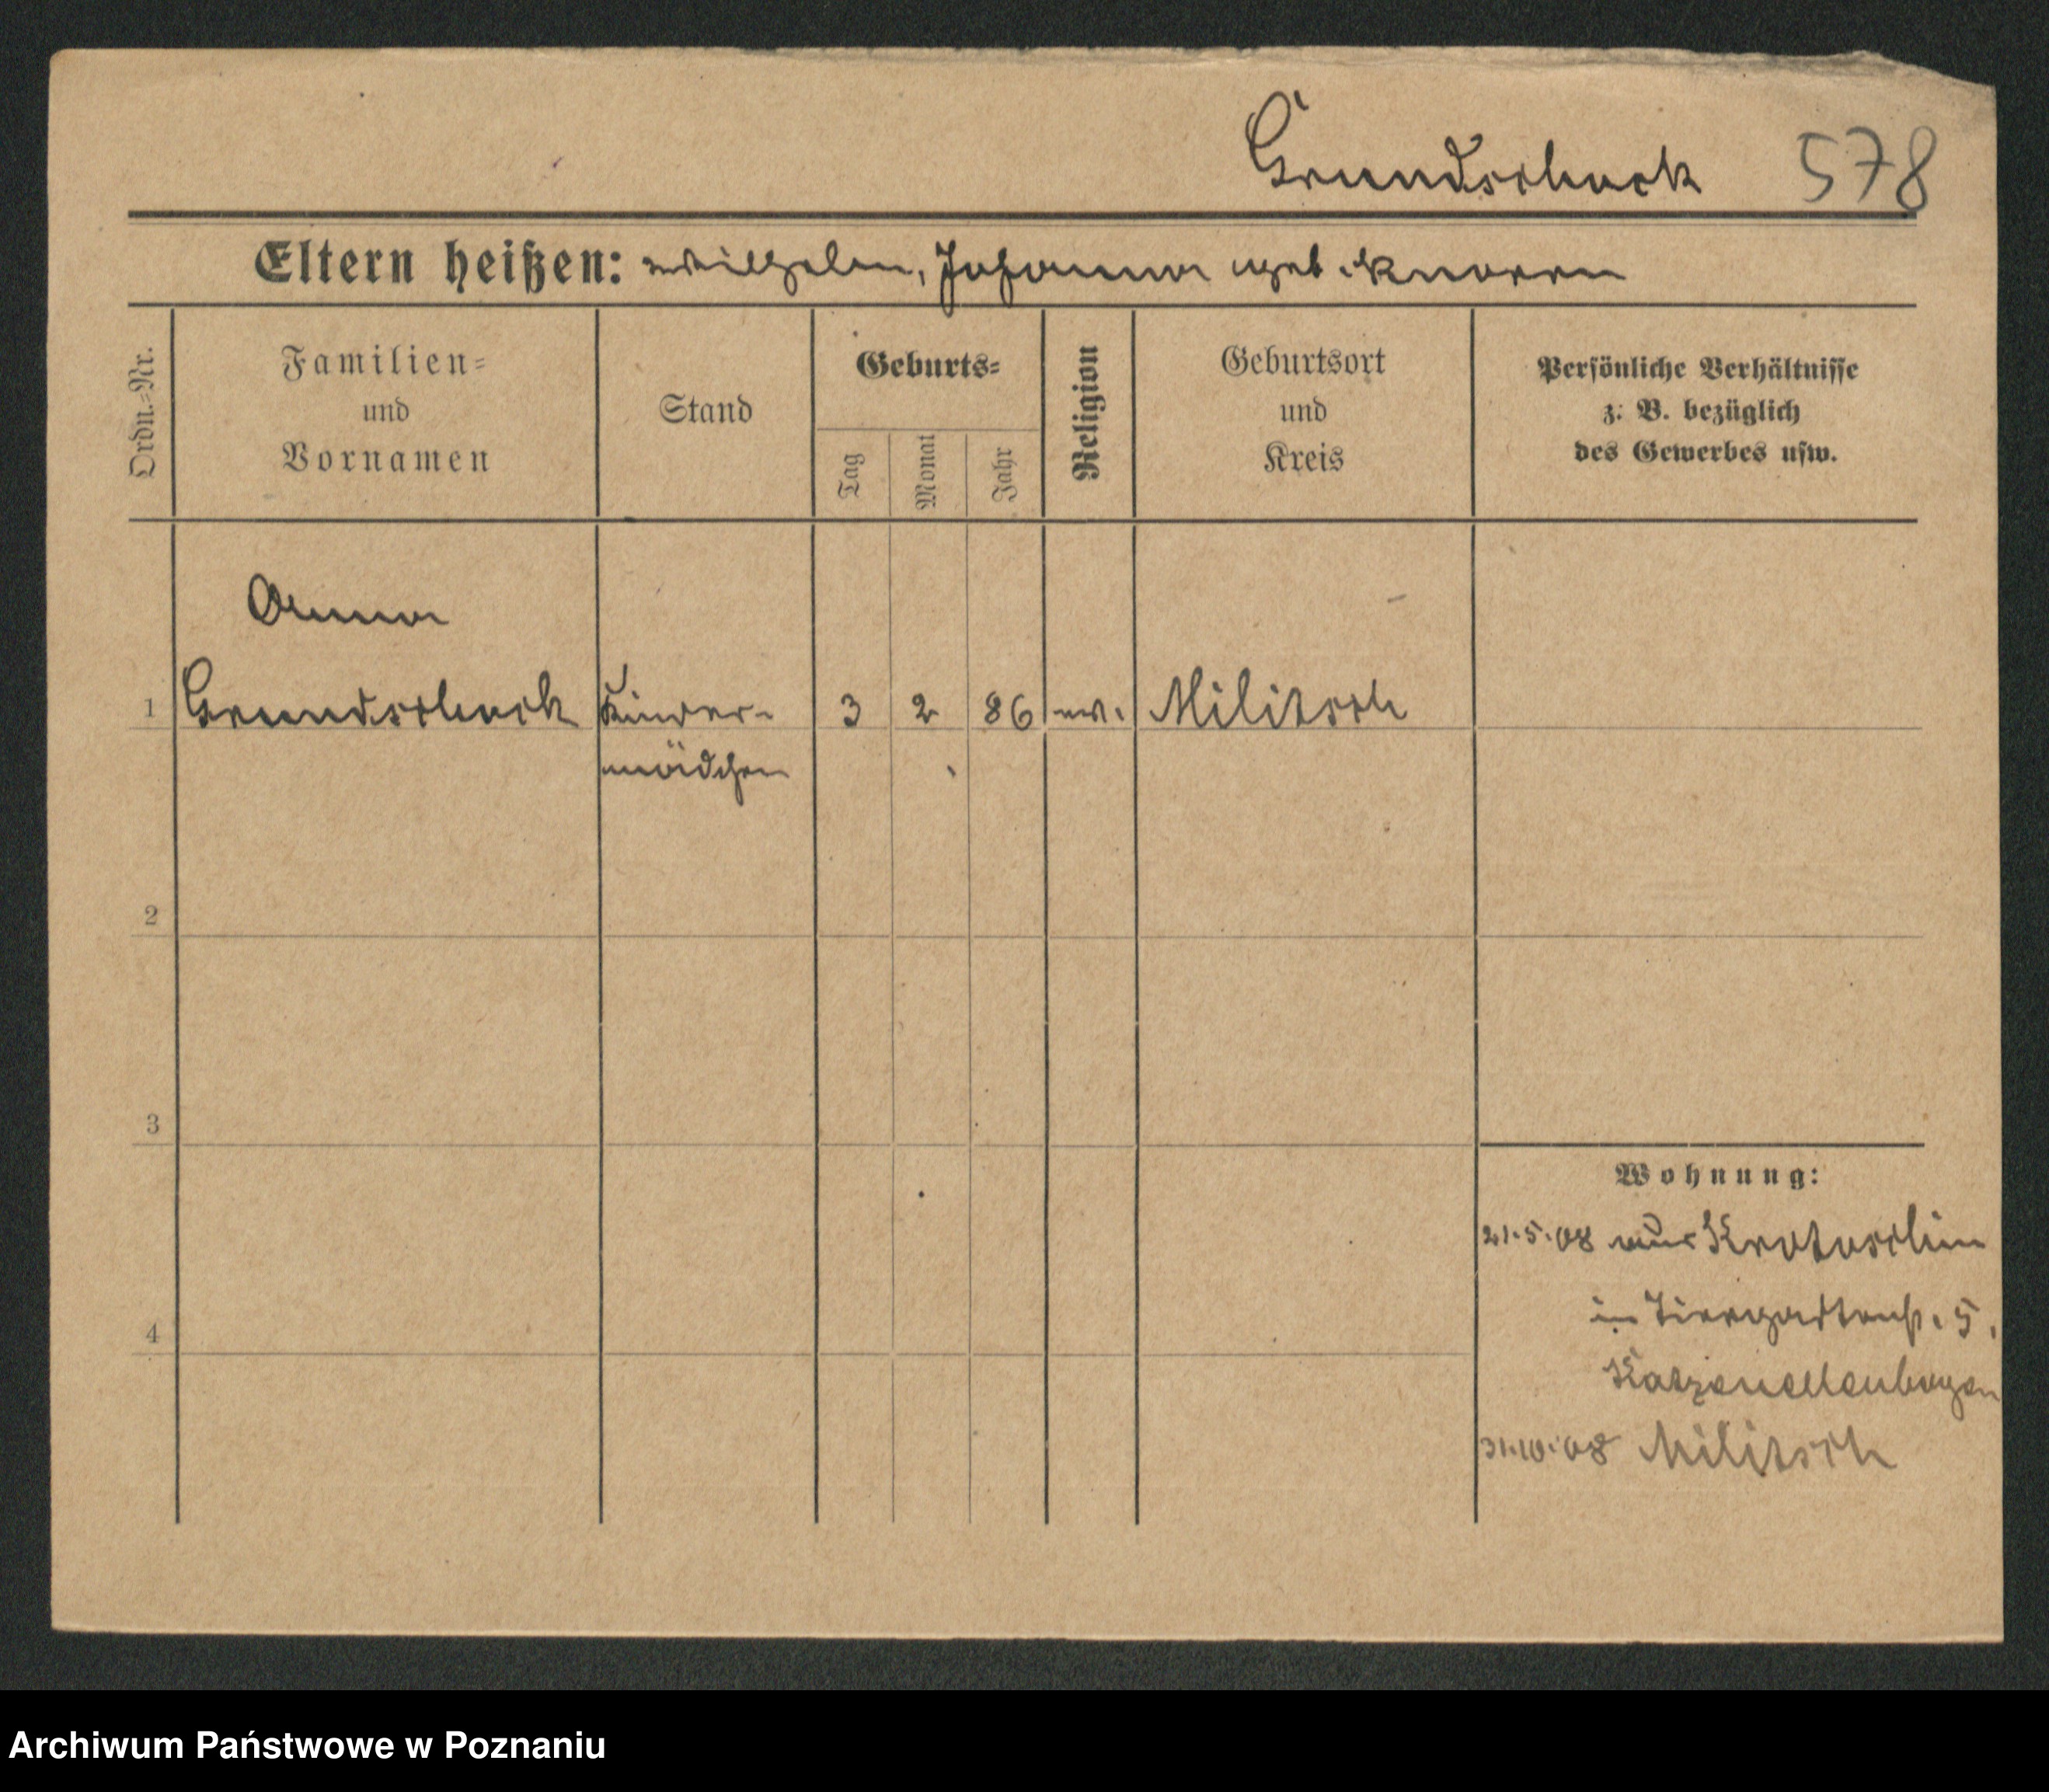 Grundschock 578
Eltern heißen: Wilhelm, Johanna geb. Knorrn
Ordn.-Nr.
Familien=
und
Vornamen
Stand
Geburts=
Tag
Monat
Jahr
Religion
Geburtsort
und
Kreis
Persönliche Verhältnisse
z. B. bezüglich
des Gewerbes usw.
Anna
1 Grundschock Kinder- 3 2 86 ev. Militsch
mädchen
2
3
Wohnung:
21.5.08 aus Krotoschin
in Tiergartenstr. 5.
4
Katzenellenbogen
31.10.08 Militsch
Archiwum Państwowe w Poznaniu